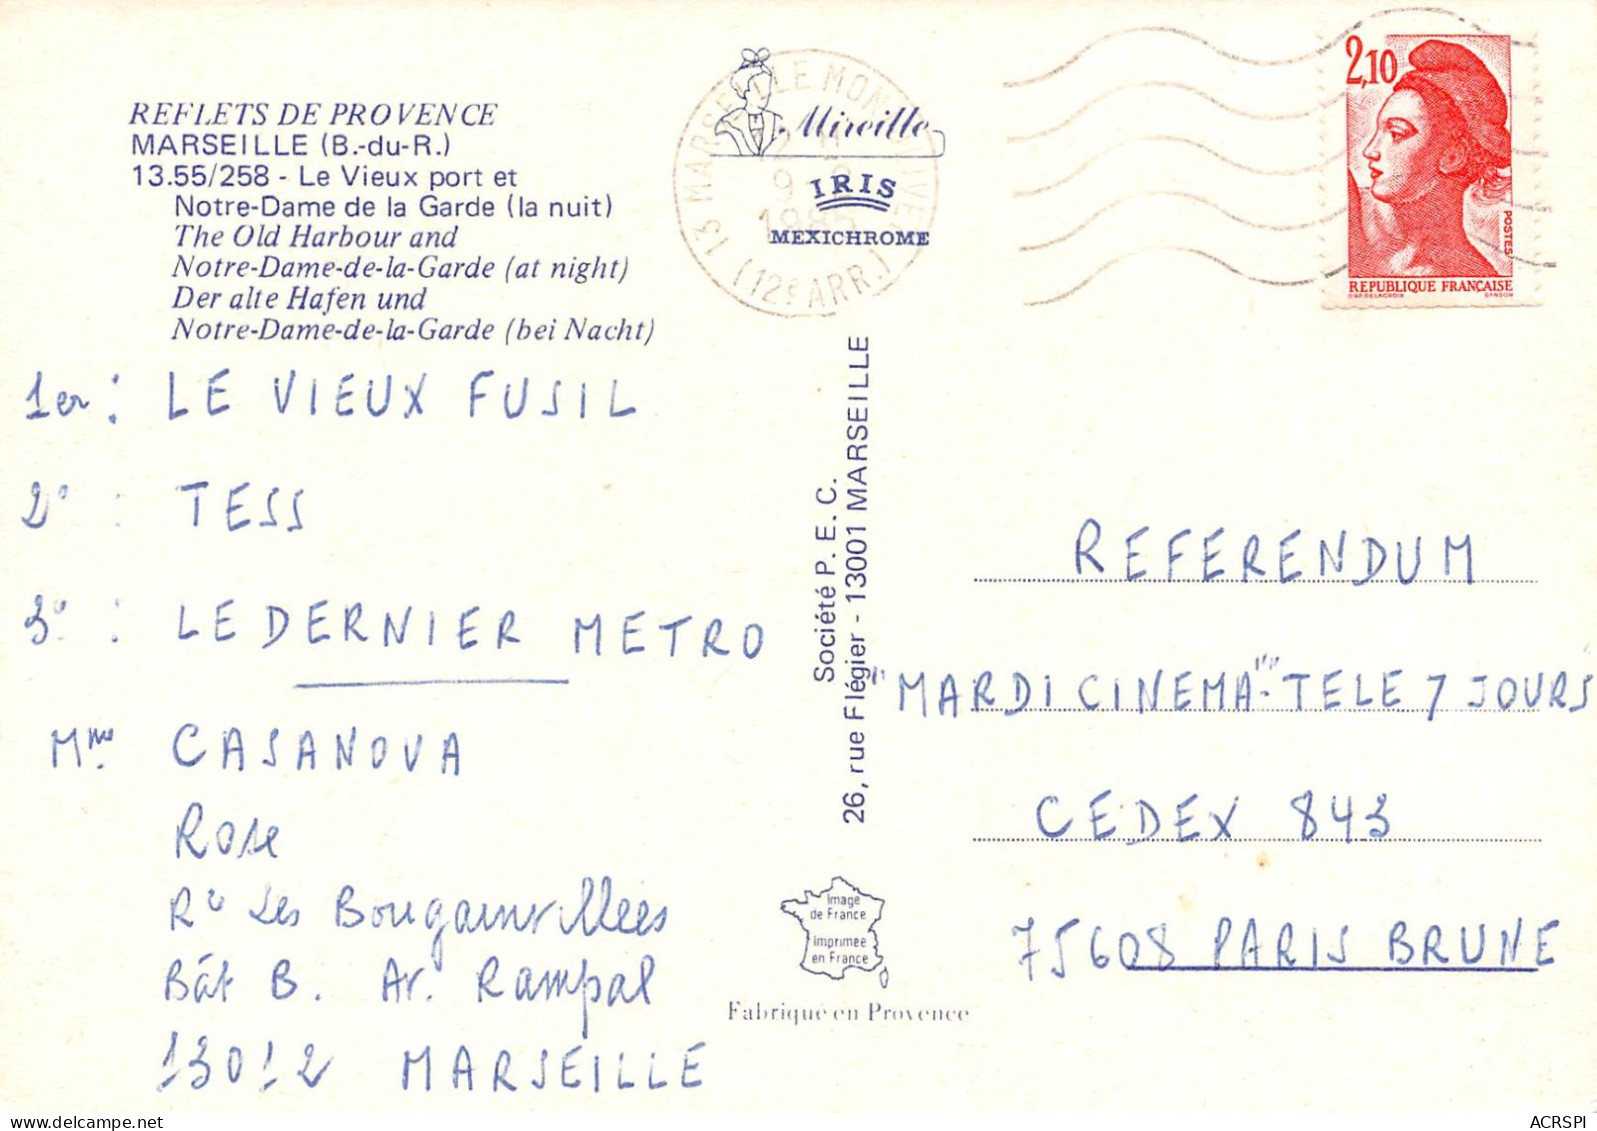 REFLETS DE PROVENCE
MARSEILLE (B.-du-R.)
13.55/258 - Le Vieux port et
Notre-Dame de la Garde (la nuit)
The Old Harbour and
Notre-Dame-de-la-Garde (at night)
Der alte Hafen und
Notre-Dame-de-la-Garde (bei Nacht)
1er : LE VIEUX FUSIL
2° : TESS
3° : LE DERNIER METRO
Mme CASANOVA
Rose
Rce Les Bougainvillees
Bât B. Av. Rampal
13012 MARSEILLE
Mireille
IRIS
MEXICHROME
13 MARSEILLE
1985
(12e ARR.)
Société P. E. C.
26, rue Flégier - 13001 MARSEILLE
Image
de France
Imprimée
en France
Fabriqué en Provence
2,10
POSTES
REPUBLIQUE FRANÇAISE
D'AP. DELACROIX GANDON
REFERENDUM
"MARDI CINEMA"-TELE 7 JOURS
CEDEX 843
75608 PARIS BRUNE
ACRSPI